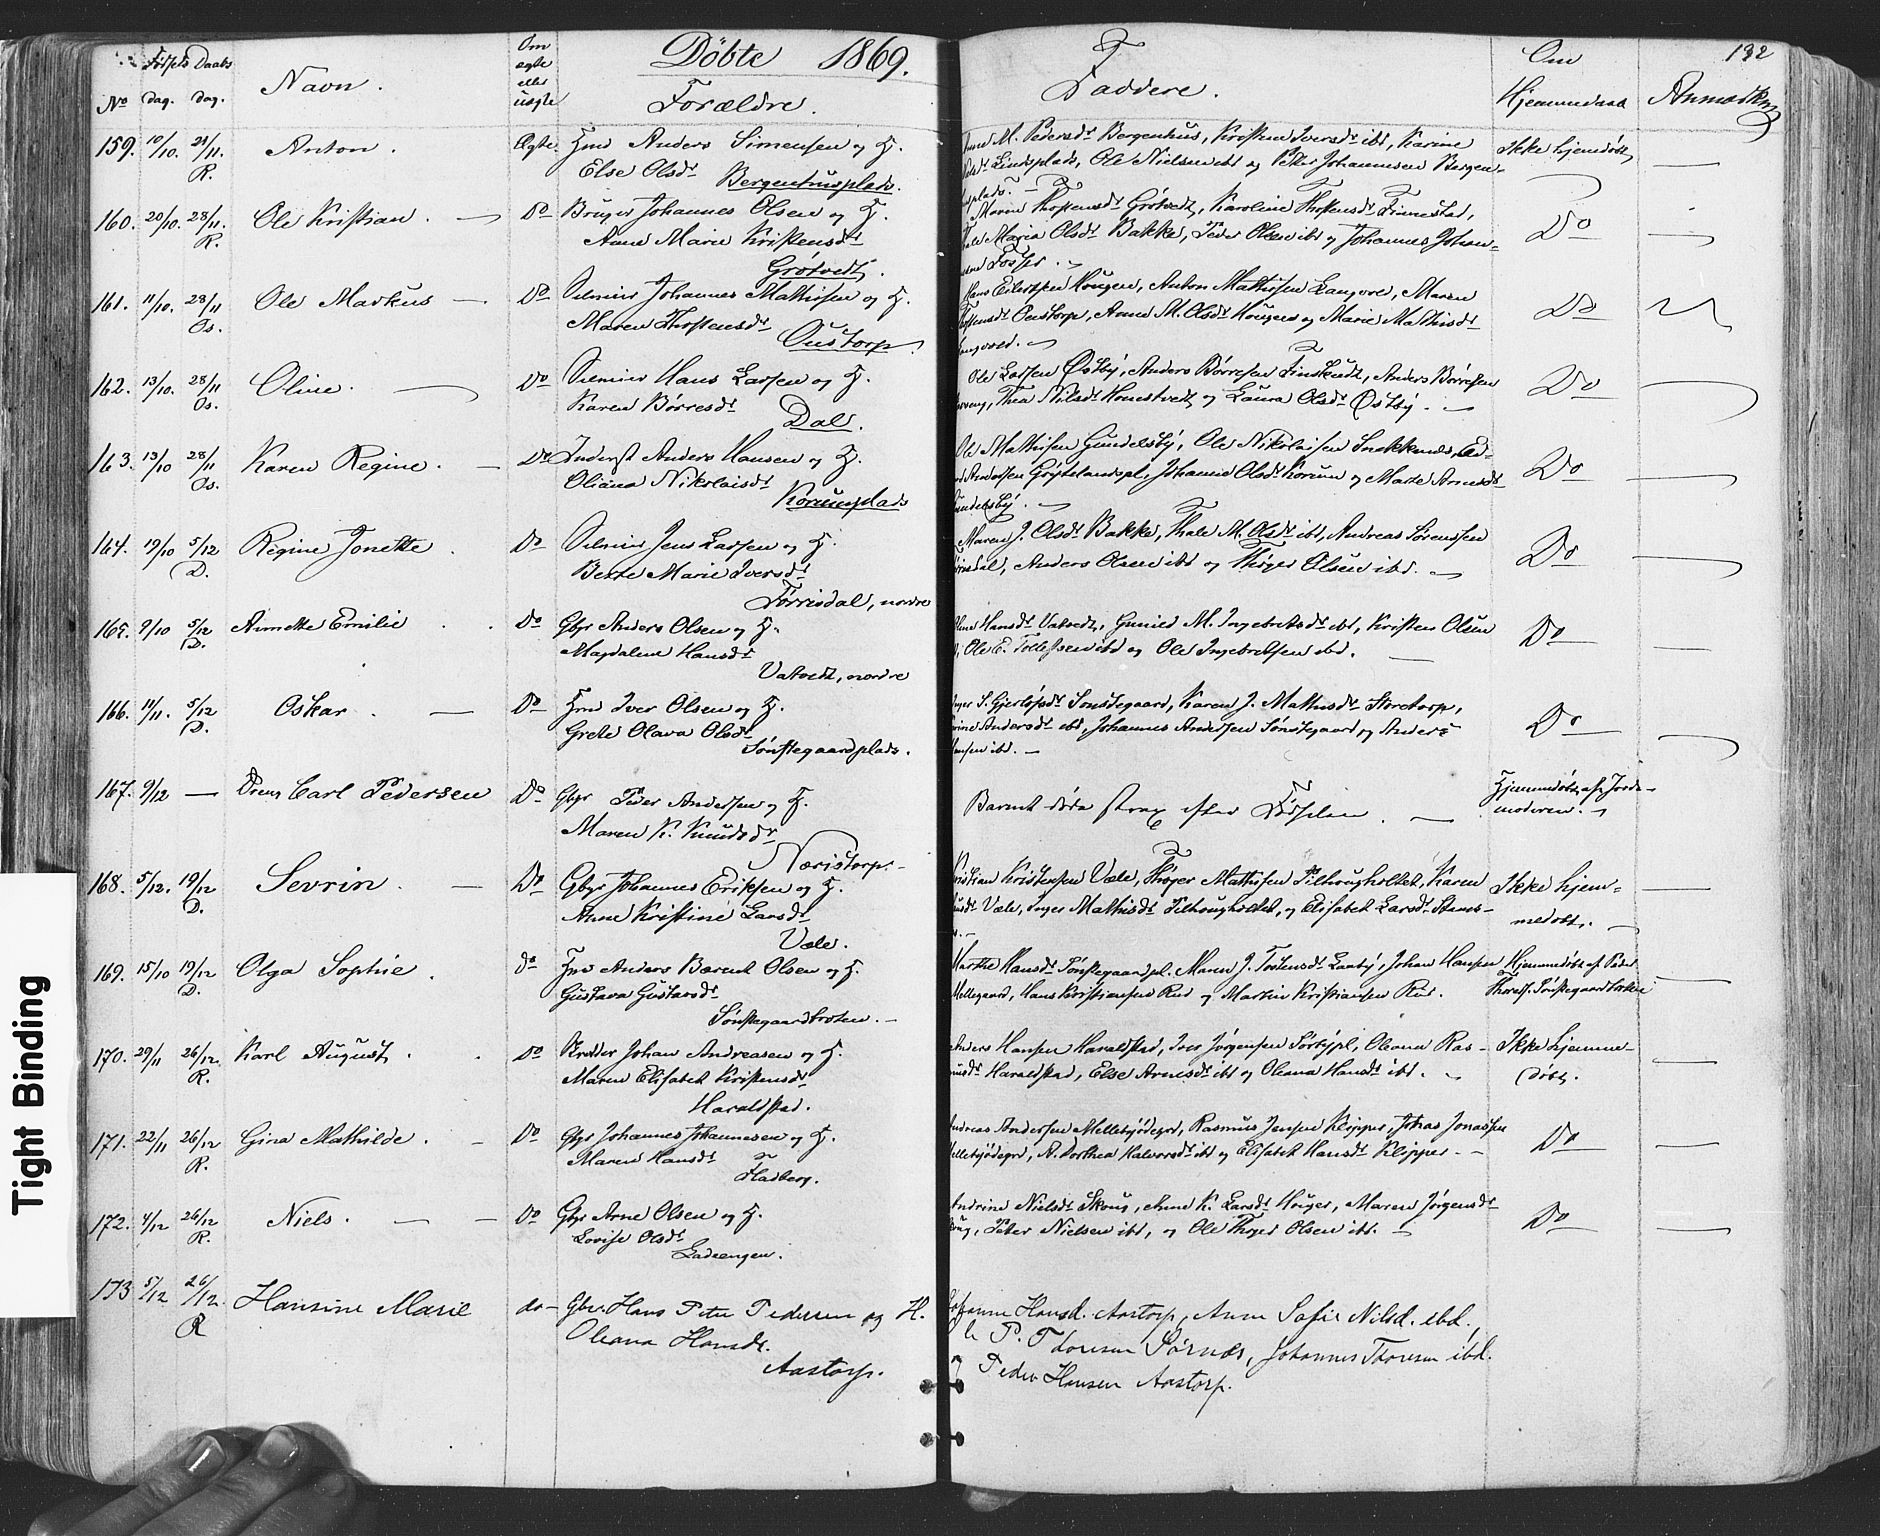 Döbte 1869.
No
Fölsels dag.
Daabs dag.
Navn.
Om ægte eller uægte
Forældre.
Faddere.
Om Hjemmedaab
Anmærkn
132
159. 10/10. 21/11. R. Anton. Ægte. Hmd Anders Simensen og H.
Else Olsdr Bergenhusplads.
M. Pedersdr Bergenhus, Kristen Iversdr ibd, Karine
Lindsplads, Ole Nielsen ibd og Peter Johannesen Bergen-
plads.
Ikke hjemdøbt
160. 20/10. 28/11. R. Ole Kristian. Do Bruger Johannes Olsen og H.
Anne Marie Kristensdr
Grötvedt.
Maren Thostensdr Grötvedt, Karoline Thostensdr Finnestad,
Maria Olsdr Bakke, Peder Olsen ibd og Johannes Johan-
Fosser.
Do
161. 11/10. 28/11 Os. Ole Markus Do Selveier Johannes Mathisen og H.
Maren Thostensdr
Oustorp.
Hans Eilertsen Hougen, Anton Mathisen Langvold, Maren
Oustorp, Anne M. Olsdr Hougen og Marie Mathisdr
Do
162. 13/10. 28/11 Os. Oline. Do Selveier Hans Larsen og H.
Karen Börresdr
Dal.
Ole Larsen Østby, Anders Börresen Finskudt, Anders Börresen
Thea Nilsdr Homstvedt og Laura Olsdr Østby.
Do
163. 13/10 28/11 Os. Karen Regine. Do Inderst Anders Hansen og H.
Oliana Nikolaisdr
Korumplads
Ole Mathisen Gundelsby, Ole Nikolaisen Snekkenæs, Ed-
Andersen Gröstelandspl., Johanne Olsdr Korum og Marte Arnesdr
Gundelsby.
Do
164. 19/10 5/12 D. Regine Jonette. Do Selveier Jens Larsen og H.
Berte Marie Iversdr
Förrisdal, nordre
Maren J. Olsdr Bakke, Thale M. Olsdr ibd, Andreas Sörenssen
Anders Olsen ibd og Thöger Olsen ibd.
Do
165. 9/10 5/12 D. Annette Emilie. Do Gbr Anders Olsen og H.
Magdalene Hansdr
Vatvedt, nordre
Hansdr Vatvedt, Gunild M. Ingebretsdr ibd, Kristen Olsen
Ole E. Tollefsen ibd og Ole Ingebretsen ibd.
Do
166. 11/11. 5/12 D. Oskar. Do Hmd Iver Olsen og H.
Grete Olava Olsdr
Sönstegaardplads.
S. Gjerlöfsdr Sönstegaard, Karen J. Mathisdr Storetorp,
Andersdr ibd, Johannes Andersen Sönstegaard og Anders
ibd.
Do
167. 9/12 — Dreng Carl Pedersen Do Gbr Peder Andersen og H.
Maren K. Knudsdr
Næristorp.
Barnet döde strax efter Fölselen.
Hjemmedöbt af Jorde-
moderen.
168. 5/12. 19/12 D. Sevrin. Do Gbr Johannes Eriksen og H.
Anne Kristine Larsdr
Væle.
Kristian Kristensen Væle, Thöger Mathisen Pilhougholtet, Karen
Væle, Inger Mathisdr Pilhougholtet, og Elisabet Larsdr
Ikke hjem-
medöbt.
169. 15/10 19/12 D. Olga Sophie. do Hmd Anders Bærent Olsen og H.
Gustava Gustavsdr
Sönstegaardbraten.
Marthe Hansdr Sönstegaardpl. Maren J. Tostensdr Laaby, Johan Hansen
Mellegaard, Hans Kristiansen Rud og Martin Kristiansen Rud.
Hjemmedöbt af Peder
Thoresf. Sönstegaardbraten
170. 29/11 26/12. R. Karl August. Do Skredder Johan Andreasen og H.
Maren Elisabet Kristensdr
Haraldstad.
Anders Hansen Haraldstad, Iver Jörgensen Sörbypl, Oleana Ras-
Haraldstad, Else Arnesdr ibd og Oleana Hansdr ibd.
Ikke hjemme-
döbt.
171. 22/11 26/12 R. Gina Mathilde. Do Gbr Johannes Johannesen og H.
Maren Hansdr
Fladberg.
Andreas Andersen Mellebyödegrd, Rasmus Jensen Klipper, Johas Jonassen
Mellebyödegrd, A. Dorthea Halvorsdr ibd og Elisabet Hansdr Klipper.
Do
172. 4/12 26/12 R. Niels. Do Gbr Arne Olsen og H.
Lovise Olsdr
Ladeengen.
Andrine Nielsdr Skoug, Anne K. Larsdr Houger, Maren Jörgensdr
Peter Nielsen ibd, og Ole Thöger Olsen ibd.
Do
173 5/12 26/12. R Hansine Marie do Gbr. Hans Peter Pedersen og H.
Oleana Hansdr.
Aastorp.
Johanne Hansd. Aastorp, Anne Sofie Nilsd. ibd.,
Ole P. Thoresen Sörnæs, Johannes Thoresen ibd.
og Peder Hansen Aastorp.
Tight Binding